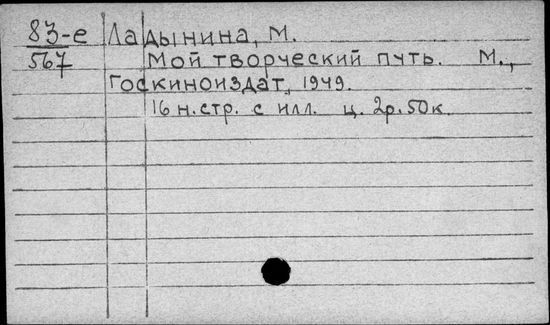 83-е Ладынина, М.
567 Мой творческий путь. М.,
Госкиноиздат, 1949.
16 н.стр. с илл. ц. 2р.50к.